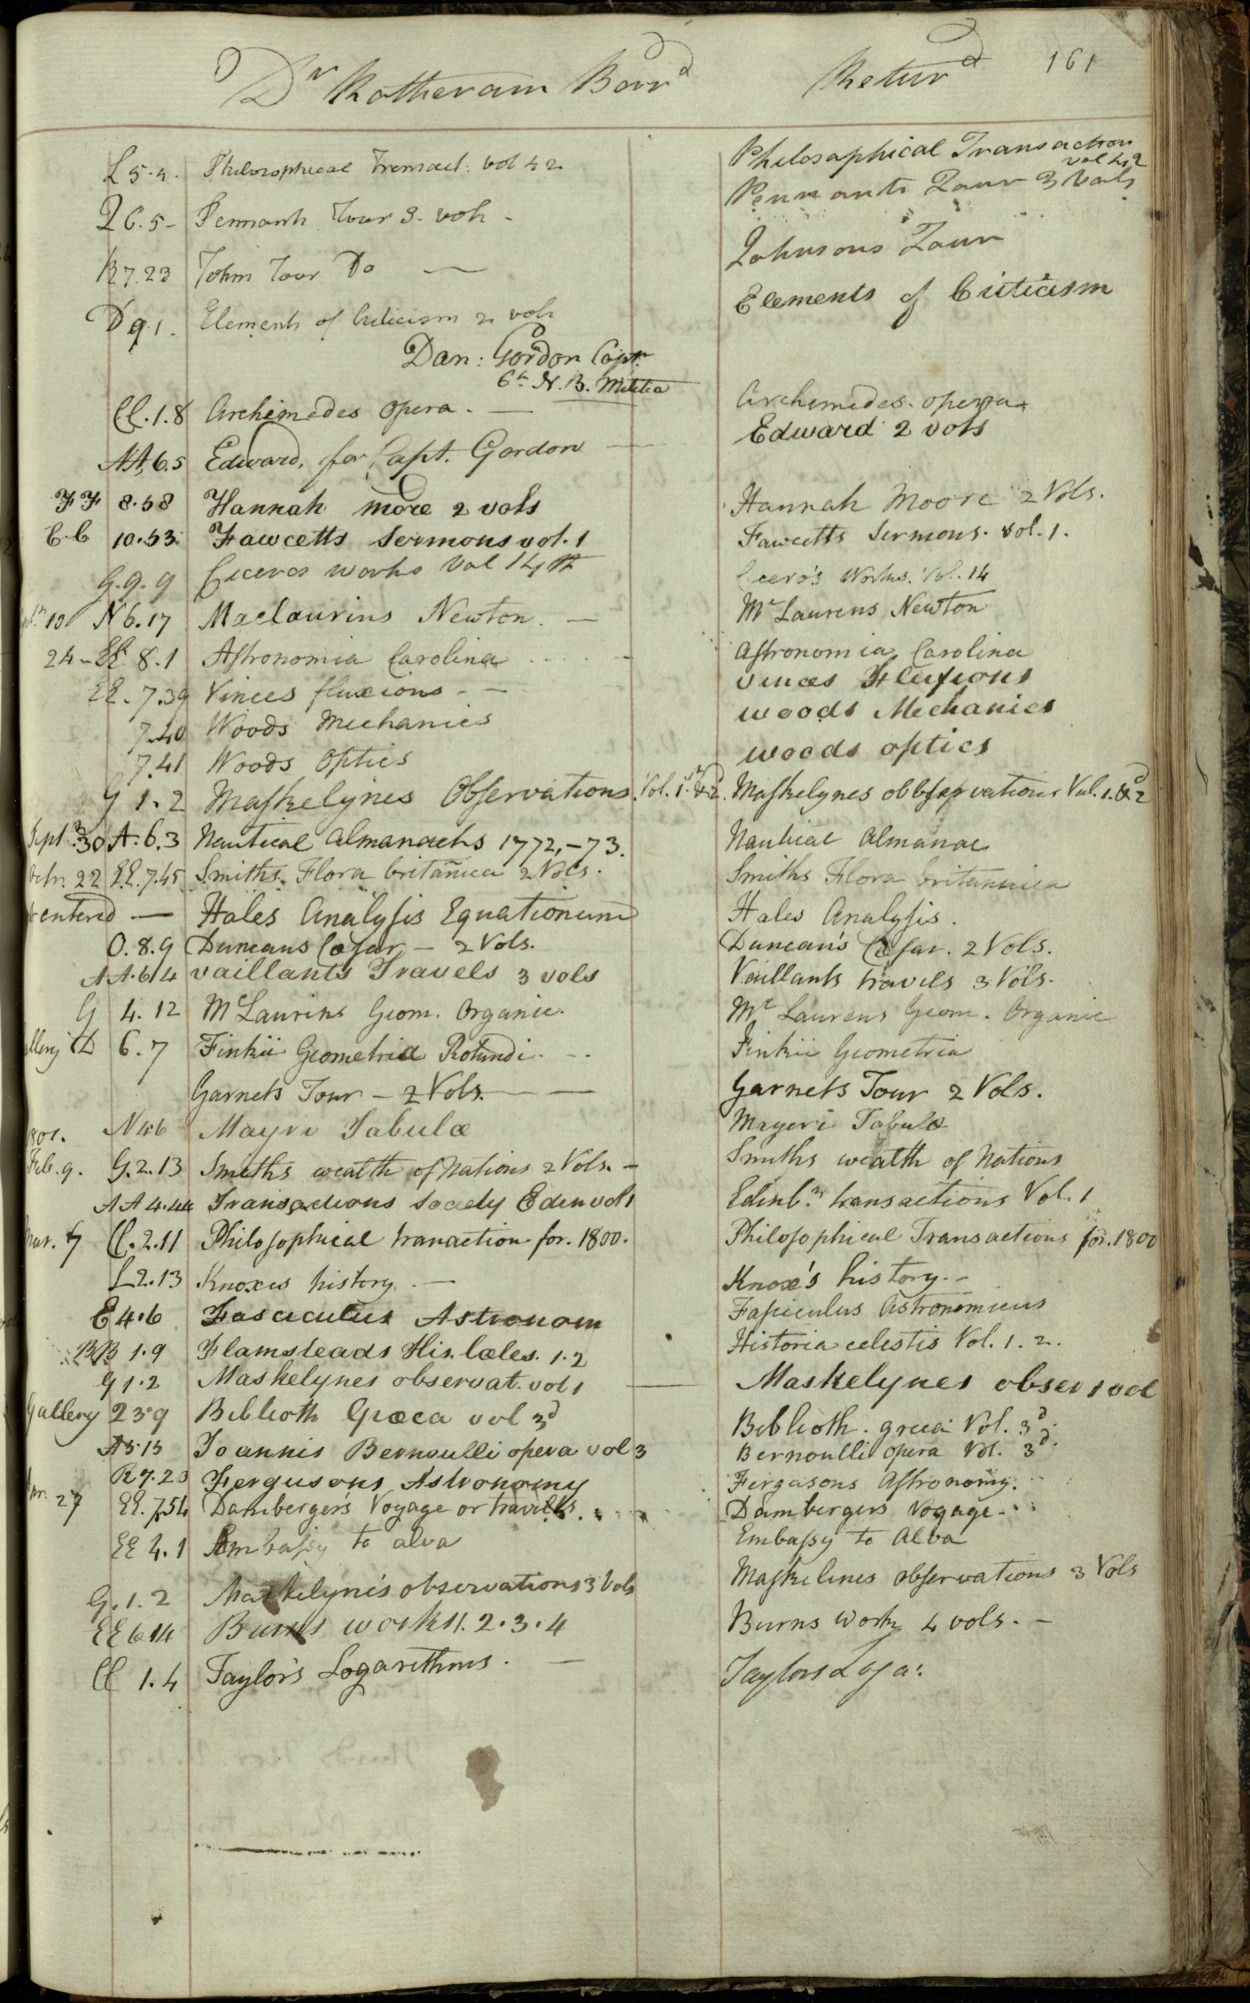 Dr Rotheram Borrd Returd 161
L 5.4. Philosophical Transact: vol 42 Philosaphical Transaction vol 42
Q 6.5 - Pennants Tour 3. vols - Pennants Tour 3 Vols
R 7.23 Johns Tour Do — Johnsons Tour
D 9.1. Elements of Criticism 2 vols Elements of Criticism
Dan: Gordon Capt.
6th N. B. Militia
CC. 1.8 Archimedes Opera. — Archimedes. opera
AA. 6.5 Edward, for Capt. Gordon Edward 2 vols
FF 8.58 Hannah more 2 vols Hannah Moore 2 Vols.
C.C 10.53 Fawcetts Sermons vol. 1 Fawcetts Sermons. vol. 1.
G. 9. 9 Ciceros works Vol 14th Cicero's Works. Vol. 14
10 N 6.17 Maclaurins Newton. — Mc Laurens Newton
24 - EE. 8.1 Astronomia Carolina Astronomia Carolina
EE. 7.39 Vinces fluxions - - vinces Fluxions
7.40 Woods Mechanics woods Mechanics
7.41 Woods Optics woods optics
G 1.2 Maskelynes Observations. Vol. 1. & 2. Maskelynes obbservations Vol. 1. & 2d
Sept. 30 A. 6.3 Nautical Almanachs 1772, - 73. Nautical Almanac
Octr. 22 EE. 7.45 Smiths Flora britanica 2 Vols. Smiths Flora britannica
entered — Hales Analysis Equationum Hales Analysis.
O. 8. 9 Duncans Cæsar — 2 Vols. Duncan's Cæsar. 2 Vols.
AA. 6.14 vaillants Travels 3 vols Vaillants travels 3 Vols.
G 4. 12 McLaurins Geom. Organic. Mc Laurens Geom. Organic
D 6. 7 Finkii Geometria Rotundi. - - Finkii Geometria
Garnets Tour — 2 Vols. — Garnets Tour 2 Vols.
1801. N 4.6 Mayri Tabulæ Mayeri Tabulæ
Feb. 9. G. 2.13 Smiths wealth of Nations 2 Vols. — Smiths wealth of Nations
AA 4.44 Transactions Society Edin vol 1 Edinbn transactions Vol. 1
Mar. 7 CC. 2.11 Philosophical tranaction for. 1800. Philosophical Transactions for. 1800
L 2.13 Knoxes history. — Knox's history. -
E 4.6 Fasciculus Astronom Fasciculus Astronomicus
BB 1.9 Flamsteads His. Cæles. 1.2 Historia celestis Vol. 1. 2.
G 1.2 Maskelynes observat. vol 1 — Maskelynes obser 1 vol
Gallery 23.9 Biblioth Græca vol 3d Biblioth. græca Vol. 3d.
A 5.13 Joannis Bernoulli opera vol 3 Bernoulli opera Vol. 3d.
R 7.23 Fergusons Astronomy Fergusons Astronomy.
27 EE. 7.54 Dambergers Voyage or travells. Dambergers voyage.
EE 4.1 Embassy to alva Embassy to Alva
G. 1. 2 Maskelyne's observations 3 Vols Maskelines observations 3 Vols
EE 6.14 Burns works 1. 2. 3. 4 Burns Works 4 vols. —
CC 1.4 Taylor's Logarithms. — Taylors Loga: